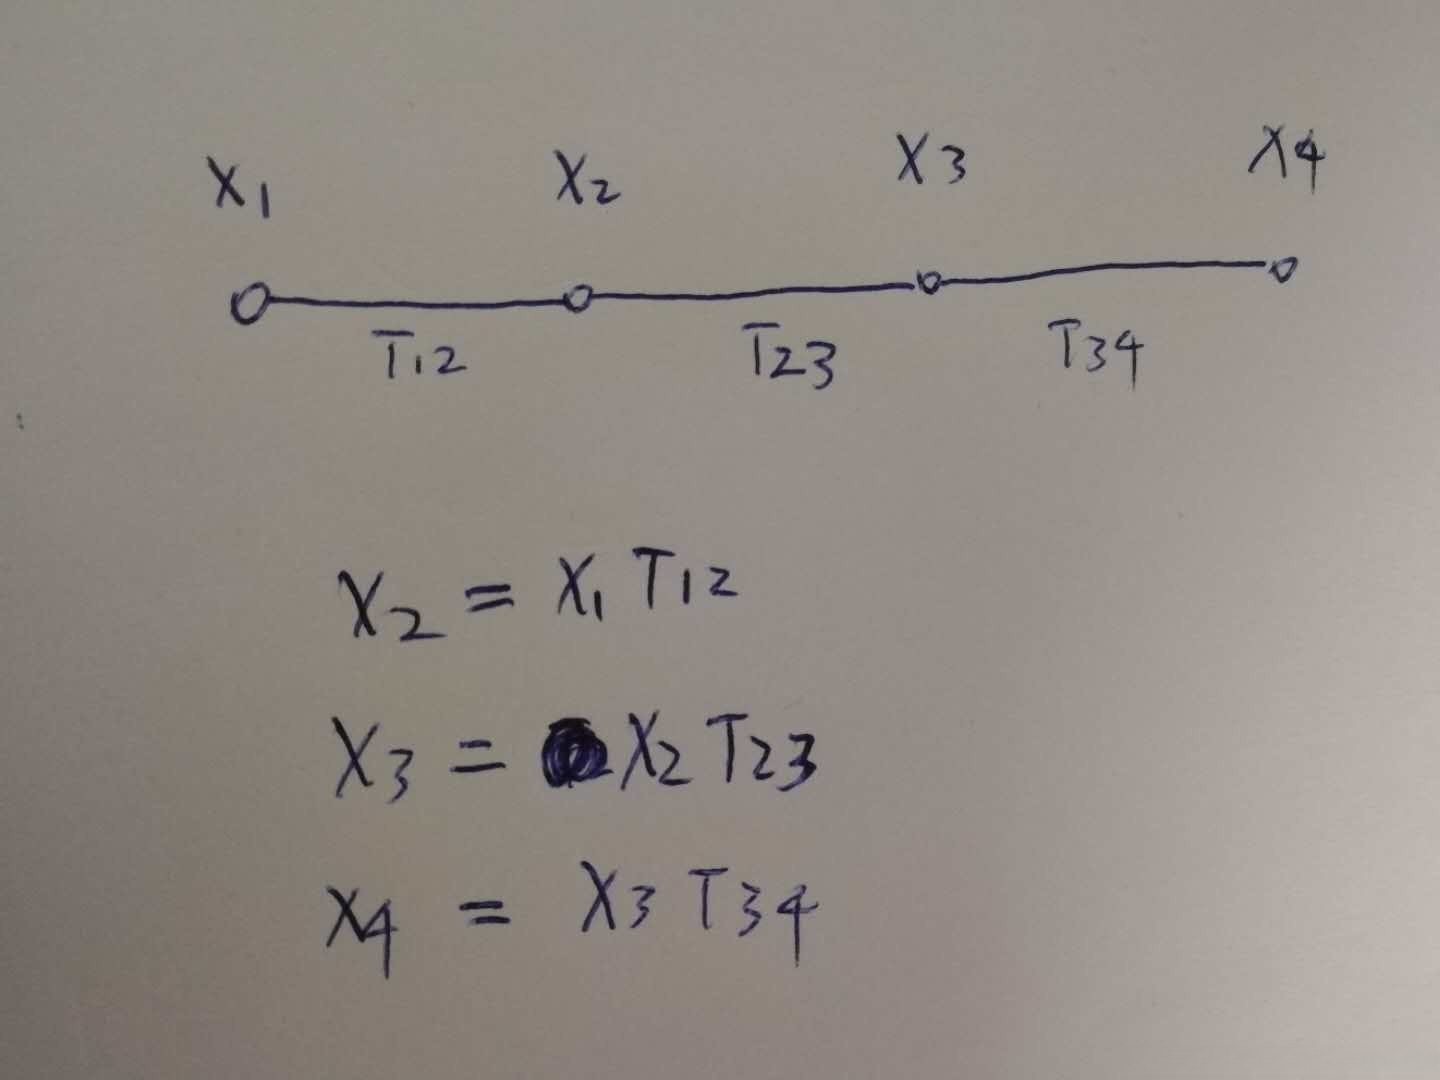 X1 X2 X3 X4
T12 T23 T34
X2 = X1 T12
X3 = X2 T23
X4 = X3 T34